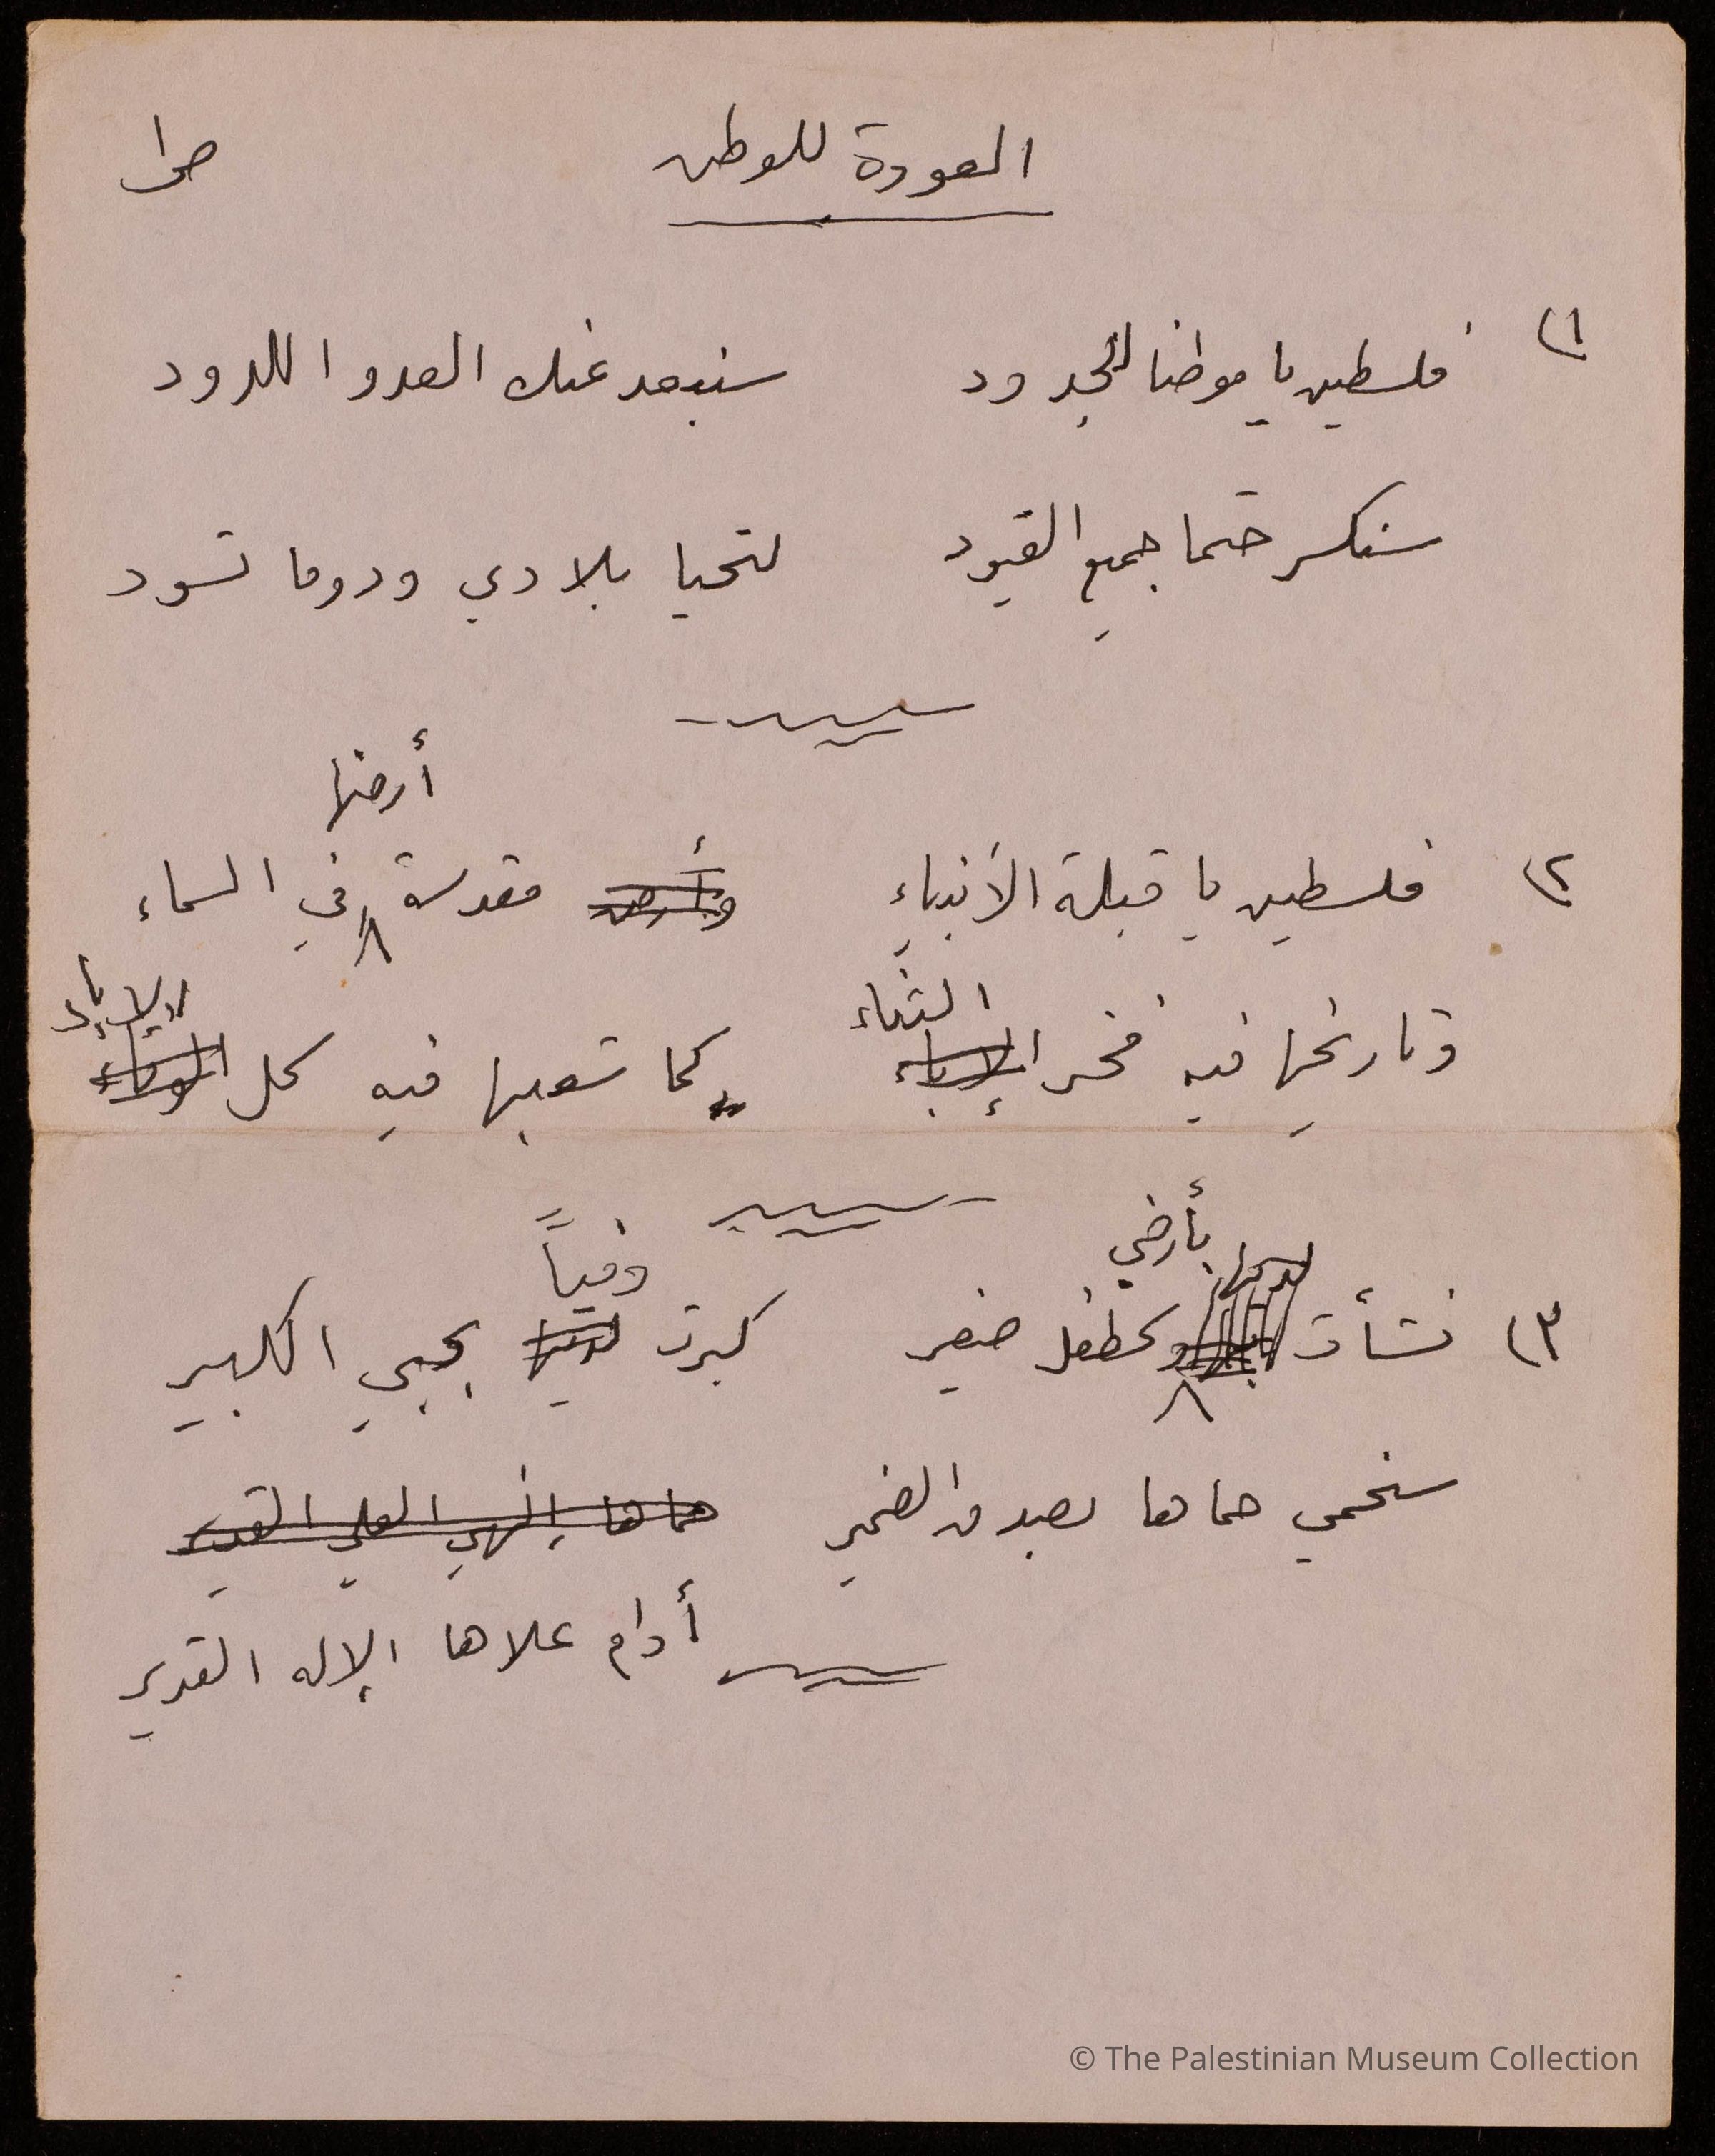 العودة للوطن ص١
١) فلسطين يا موطنا للجدود سنبعد عنك العدو اللدود
سنكسر حتما جميع القيود لتحيا بلادي ودوما تسود
أرضها
٢) فلسطين يا قبلة الأنبياء وأرض مقدسة في السماء
الثناء الإباء
وتاريخها فيه فخر الإباء كما شعبها فيه كل الوفاء
بأرضي وفياً
٣) نشأت كطفل صغير كبرت لديها بحبي الكبير
سنحمي حماها بصدق الضمير حماها إلهي العلي القدير
أدام علاها الإله القدير
© The Palestinian Museum Collection